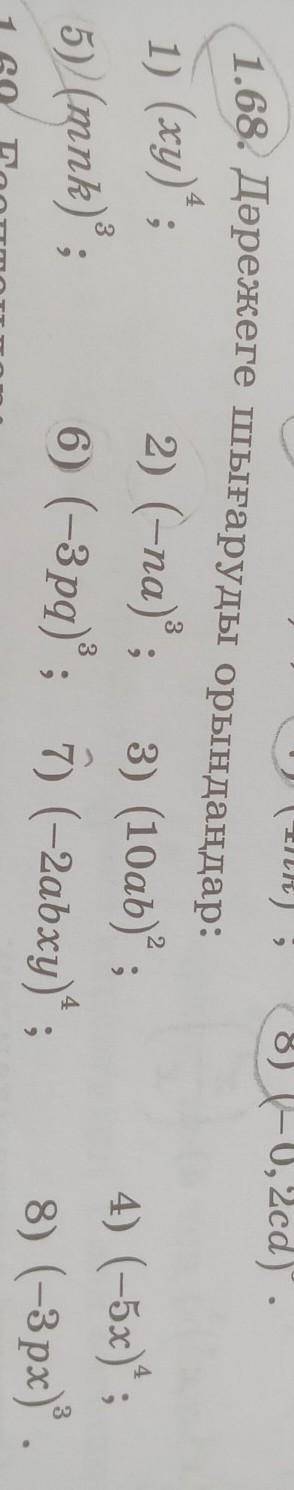 8) (−0,2cd)
1.68. Дәрежеге шығаруды орындаңдар:
1) (xy)⁴; 2) (−na)³; 3) (10ab)²; 4) (−5x)⁴;
5) (mnk)³; 6) (−3pq)³; 7) (−2abxy)⁴; 8) (−3px)³.